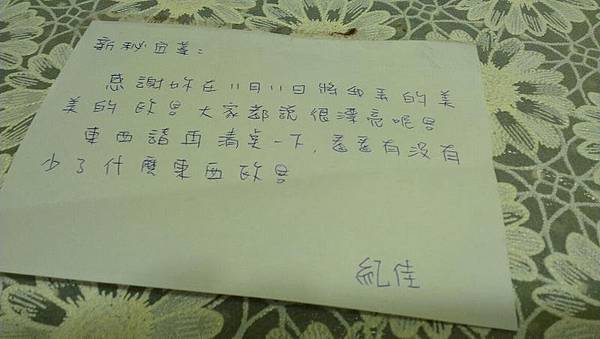 新秘宜蓁：
感謝妳在11月11日將我弄的美
美的 大家都說很漂亮呢
東西請再清點一下，看看有沒有
少了什麼東西
佳